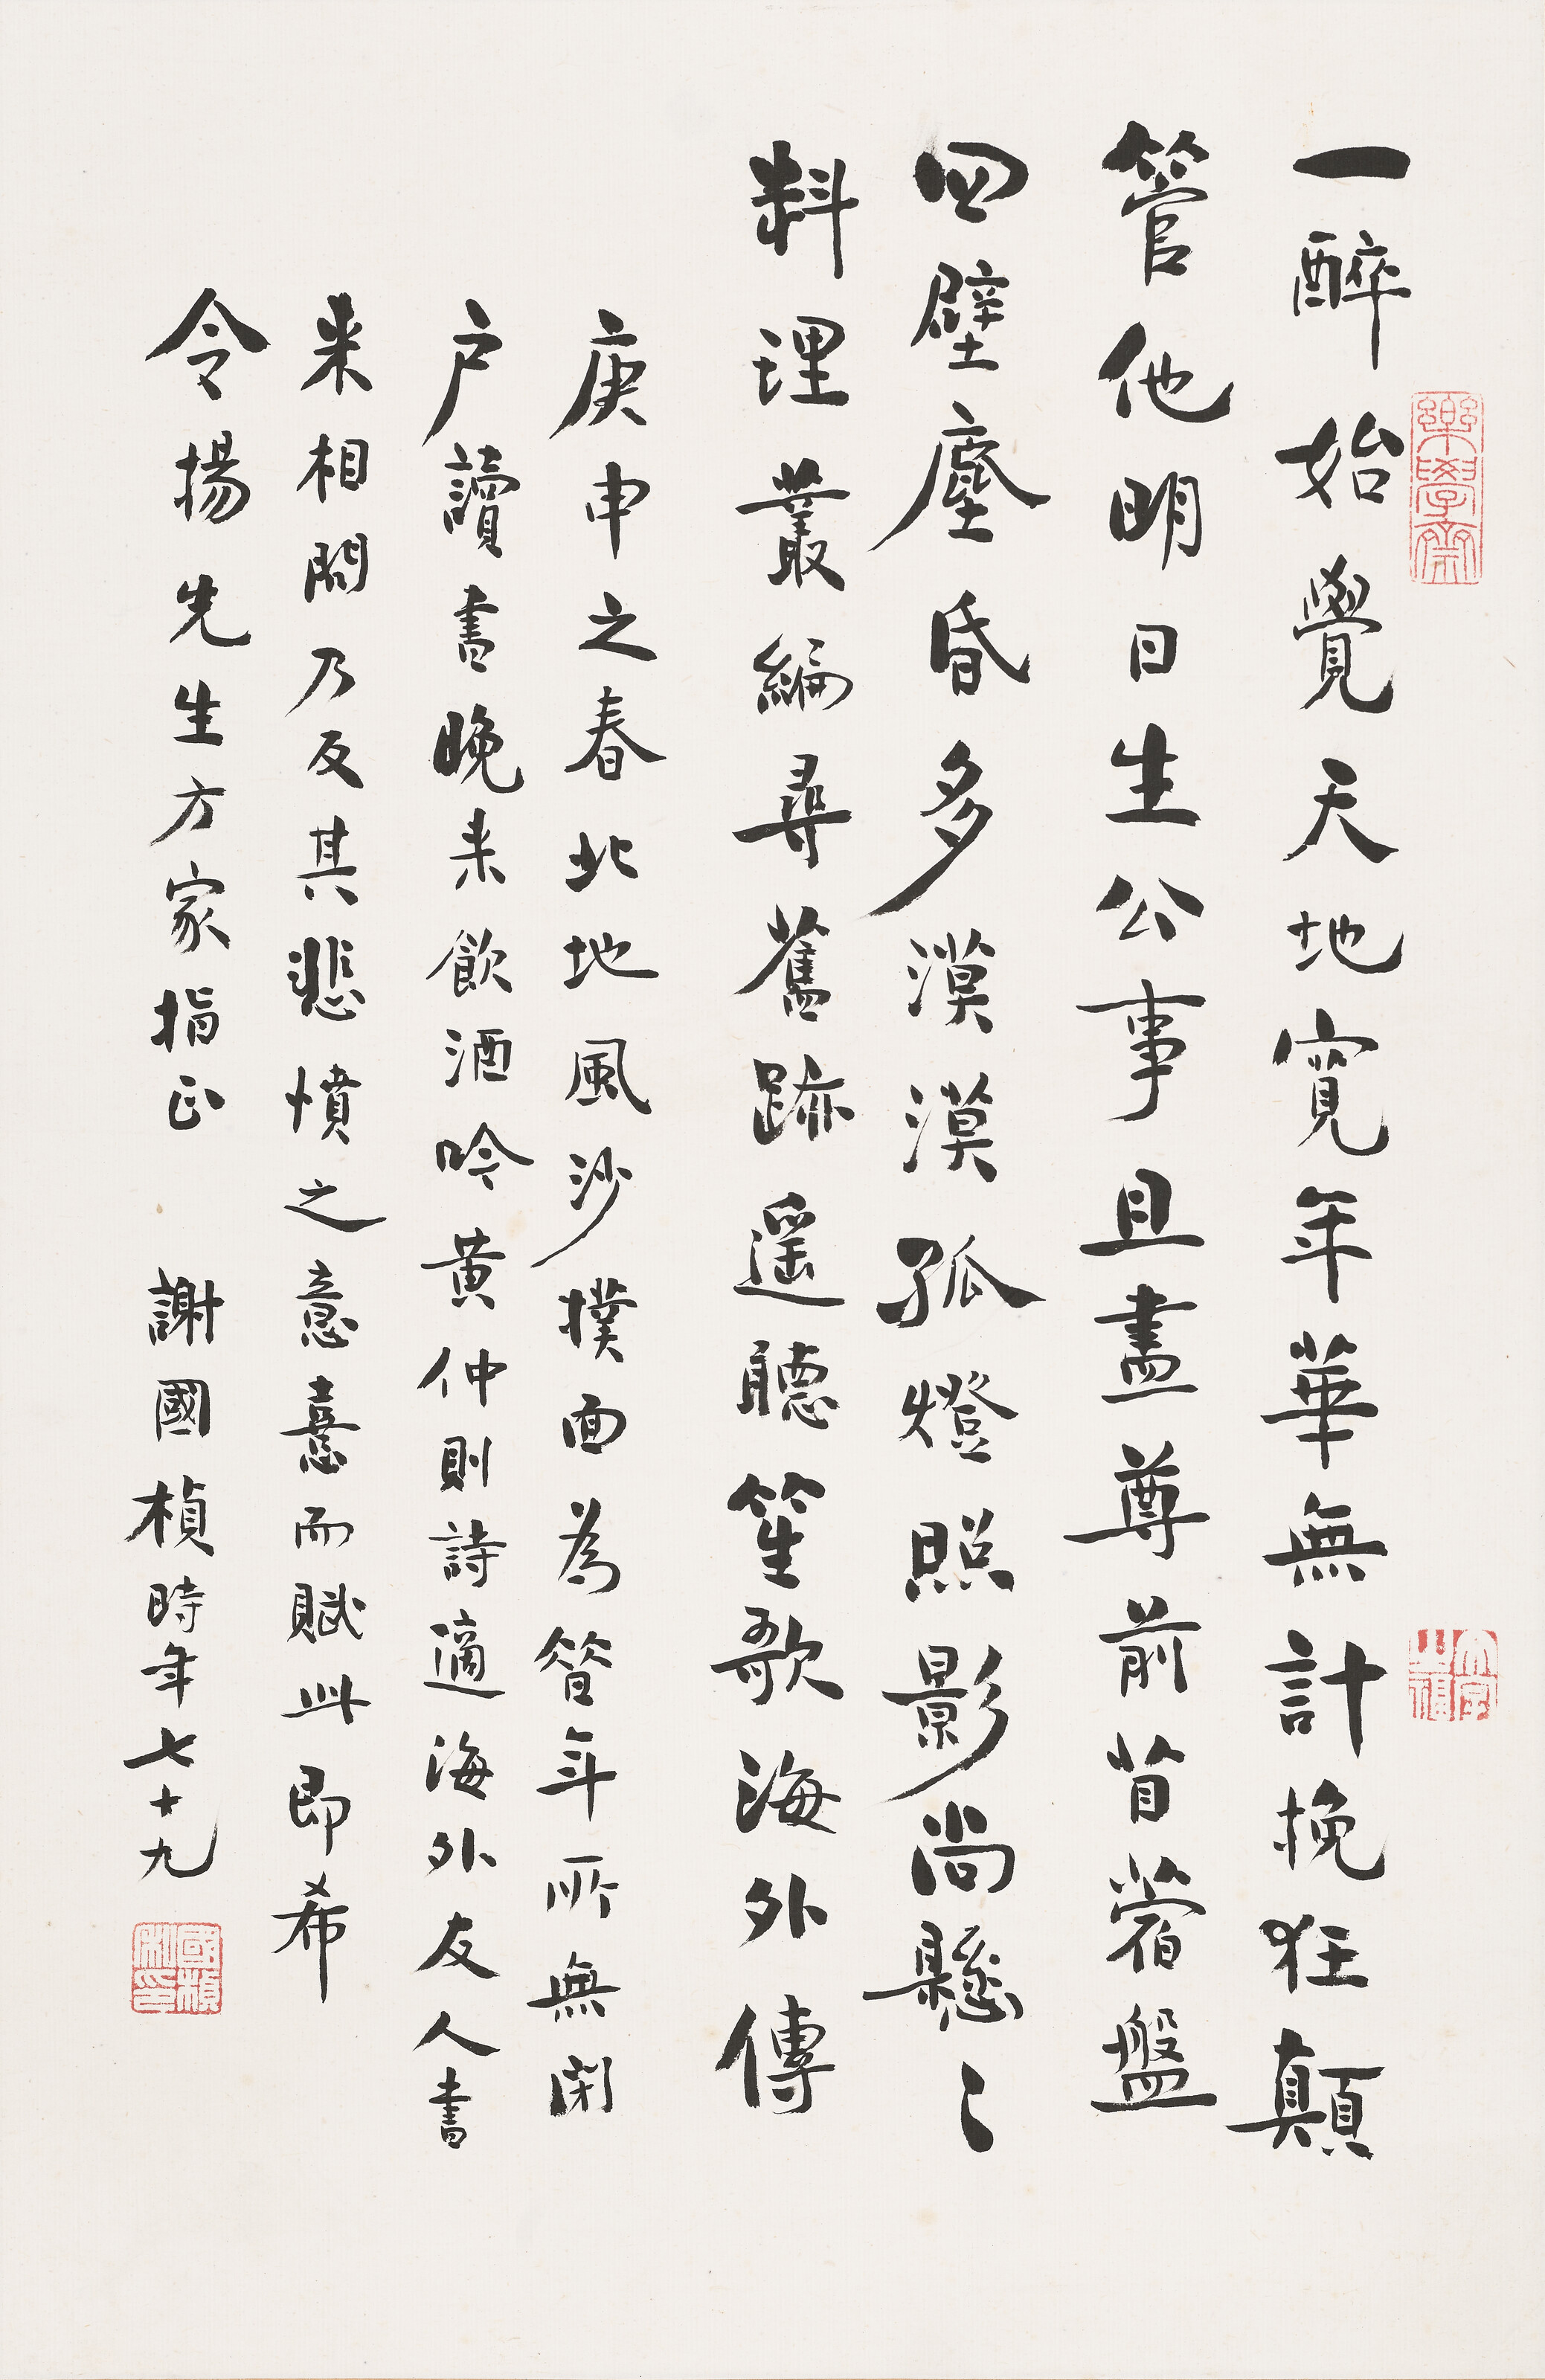 一醉始覺天地寬年華無計挽狂顛
管他明日生公事且盡尊前苜蓿盤
四壁塵昏多漠漠孤燈照影尚懸〻
料理叢編尋舊跡遥聽笙歌海外傳
庚申之春北地風沙撲面為管年所無閉
户讀書晚来飲酒吟黃仲則詩適海外友人書
来相問乃反其悲憤之意憙而賦此即希
令揚先生方家指正 謝國楨時年七十九
樂學齋
國楨私印